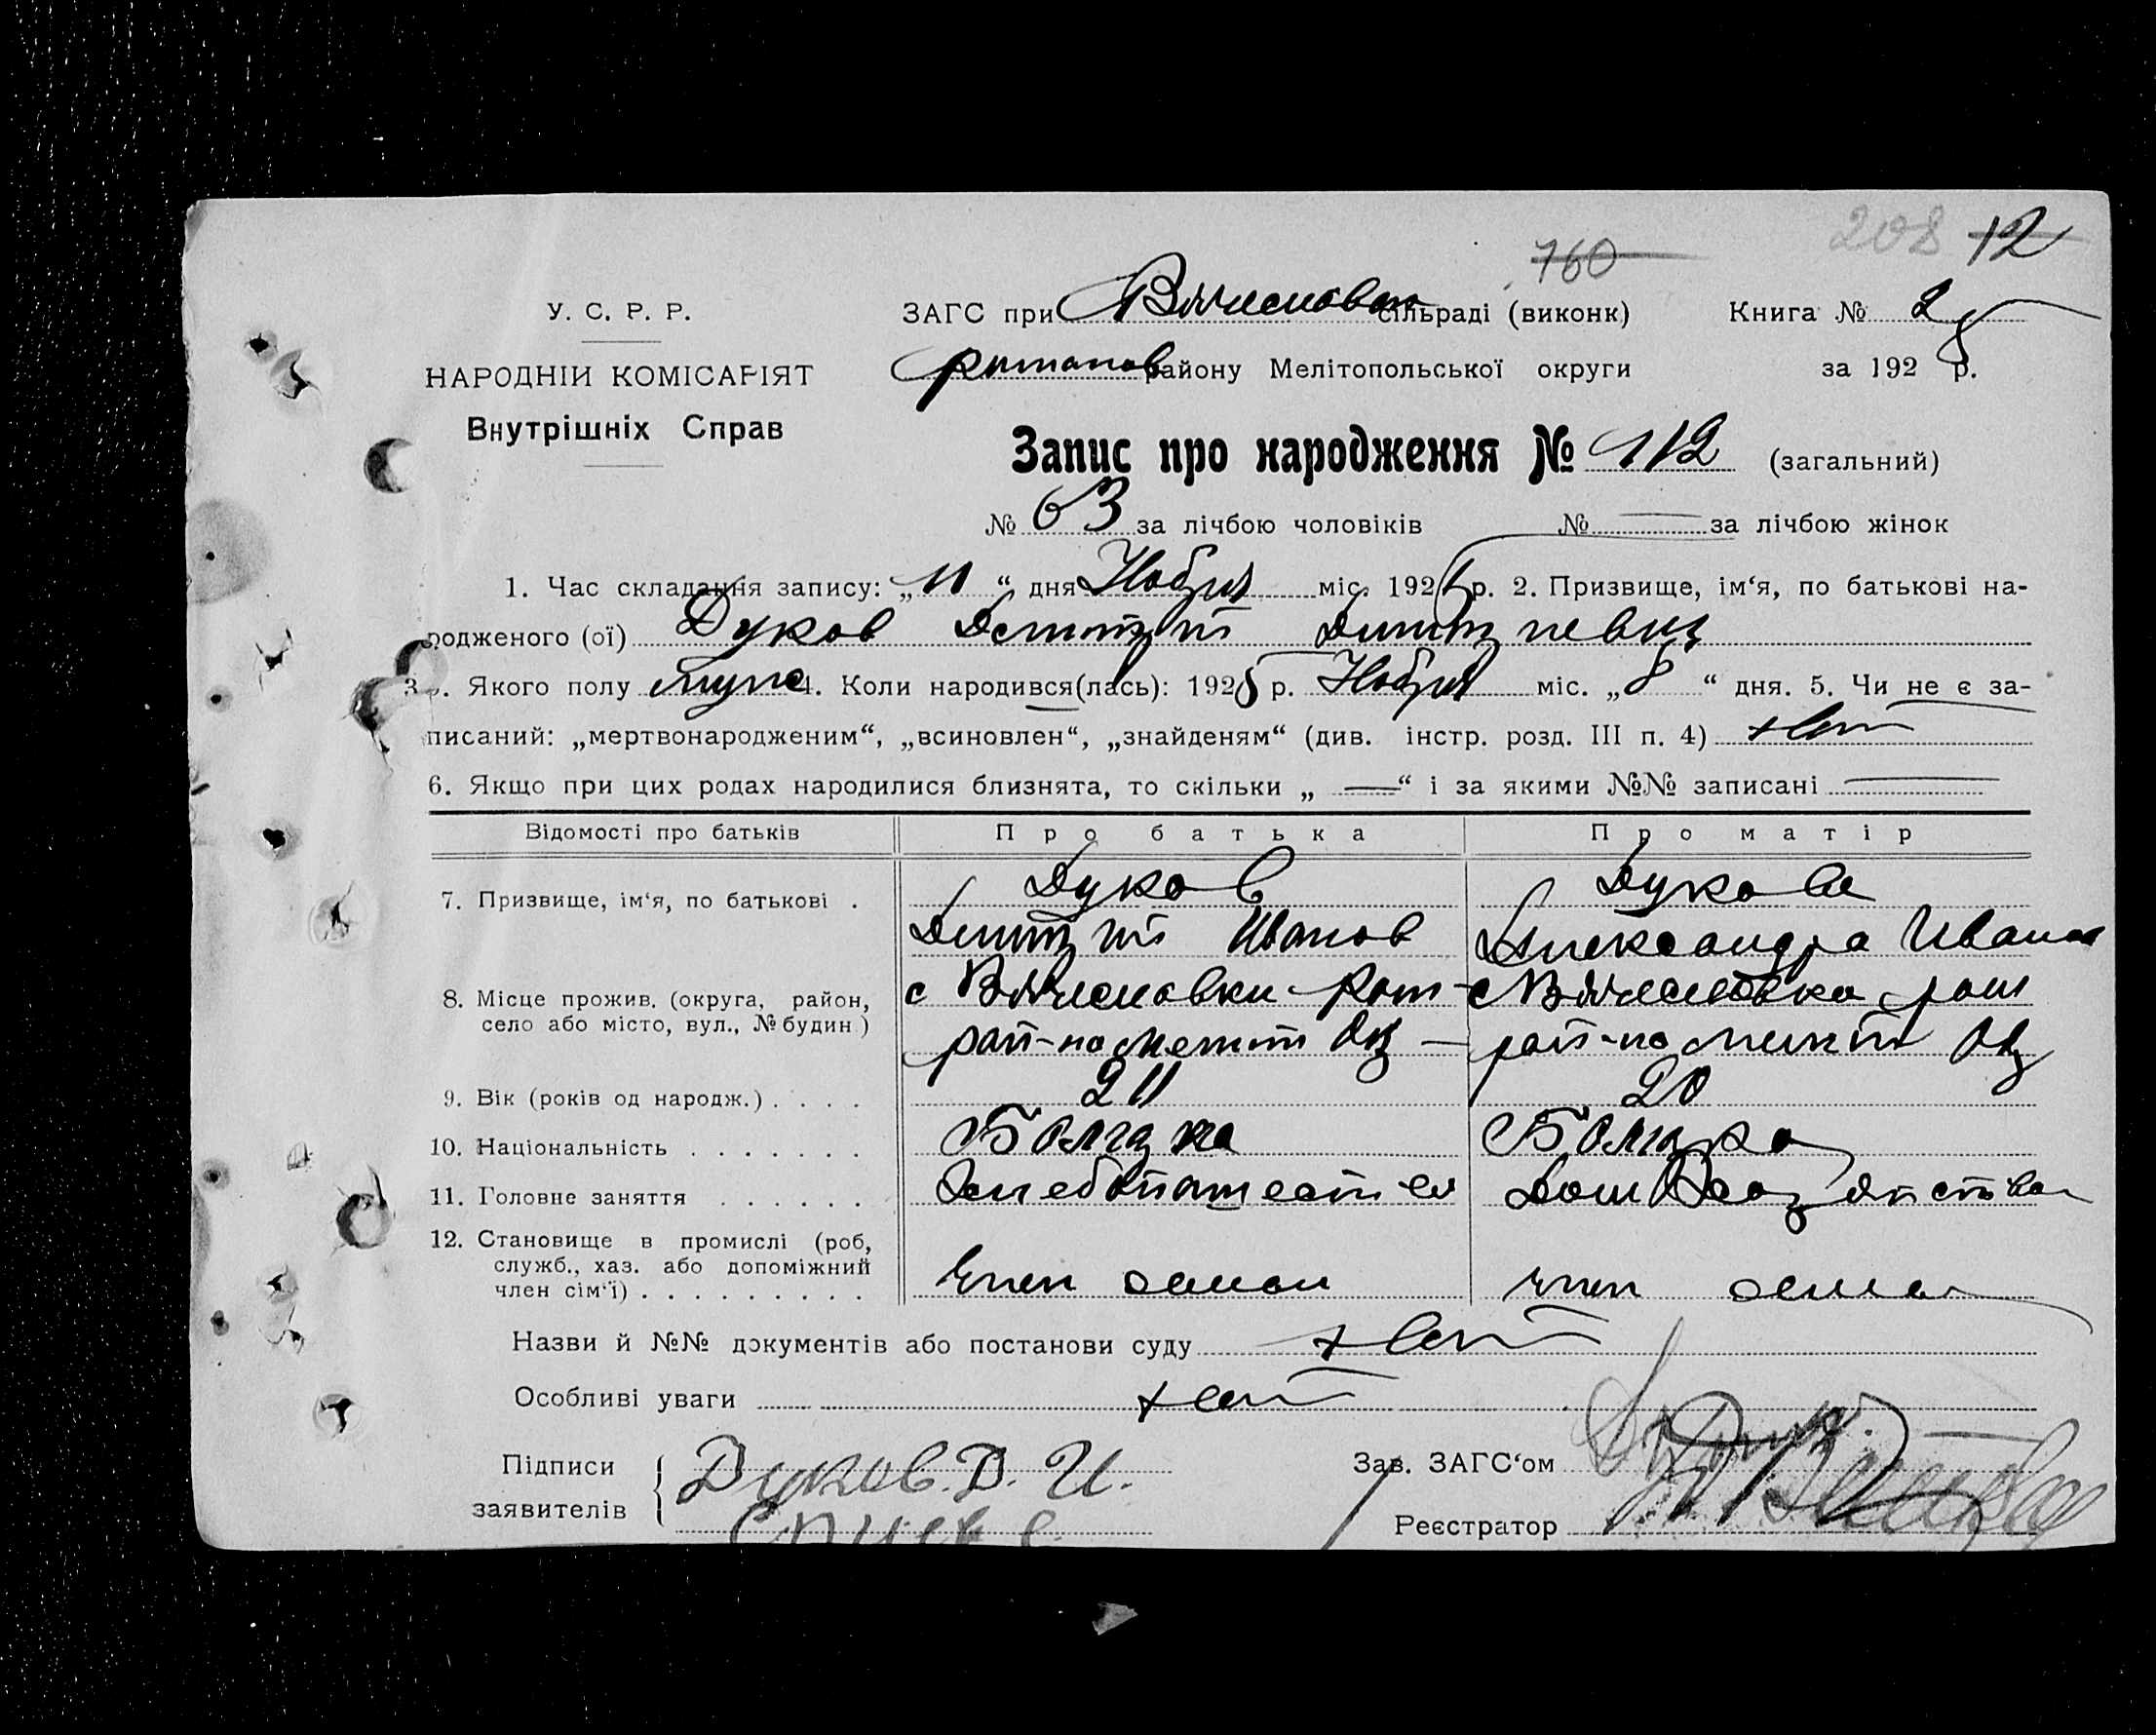 760 208 12
У. С. Р. Р.
ЗАГС при Вячеслов сільраді (виконк) Книга № 2
НАРОДНІЙ КОМІСАРІЯТ
району Мелітопольської округи за 192 р.
Внутрішніх Справ
Запис про народження № 112 (загальний)
№ 63 за лічбою чоловіків № — за лічбою жінок
1. Час складання запису: „11“ дня Ноября міс. 192 р. 2. Призвище, ім‘я, по батькові на-
родженого (ої) Дуков Дмитрий Дмитриевич
3. Якого полу муж 4. Коли народився(лась): 192 р. Ноября міс. „8“ дня. 5. Чи не є за-
писаний: „мертвонародженим“, „всиновлен“, „знайденям“ (див. інстр. розд. III п. 4) нет
6. Якщо при цих родах народилися близнята, то скільки „ — “ і за якими №№ записані —
Відомості про батьків Про батька Про матір
7. Призвище, ім‘я, по батькові . Дуков Дукова
Дмитрий Иванов Александра Иванов
8. Місце прожив. (округа, район, с Вячеславки Ром с Вячеславка ром
село або місто, вул., № будин) рай-на Мелит Окр — рай-на Мелит Окр
9. Вік (років од народж.) . . . . 20
10. Національність . . . . . . . Болгарка Болгарка
11. Головне заняття . . . . . . Хлебопашество
12. Становище в промислі (роб,
служб., хаз. або допоміжний
член сім‘ї) . . . . . . . . . член семьи член семьи
Назви й №№ документів або постанови суду нет
Особливі уваги нет
Підписи Дуков. Д. И. Зав. ЗАГС‘ом
заявителів Реєстратор